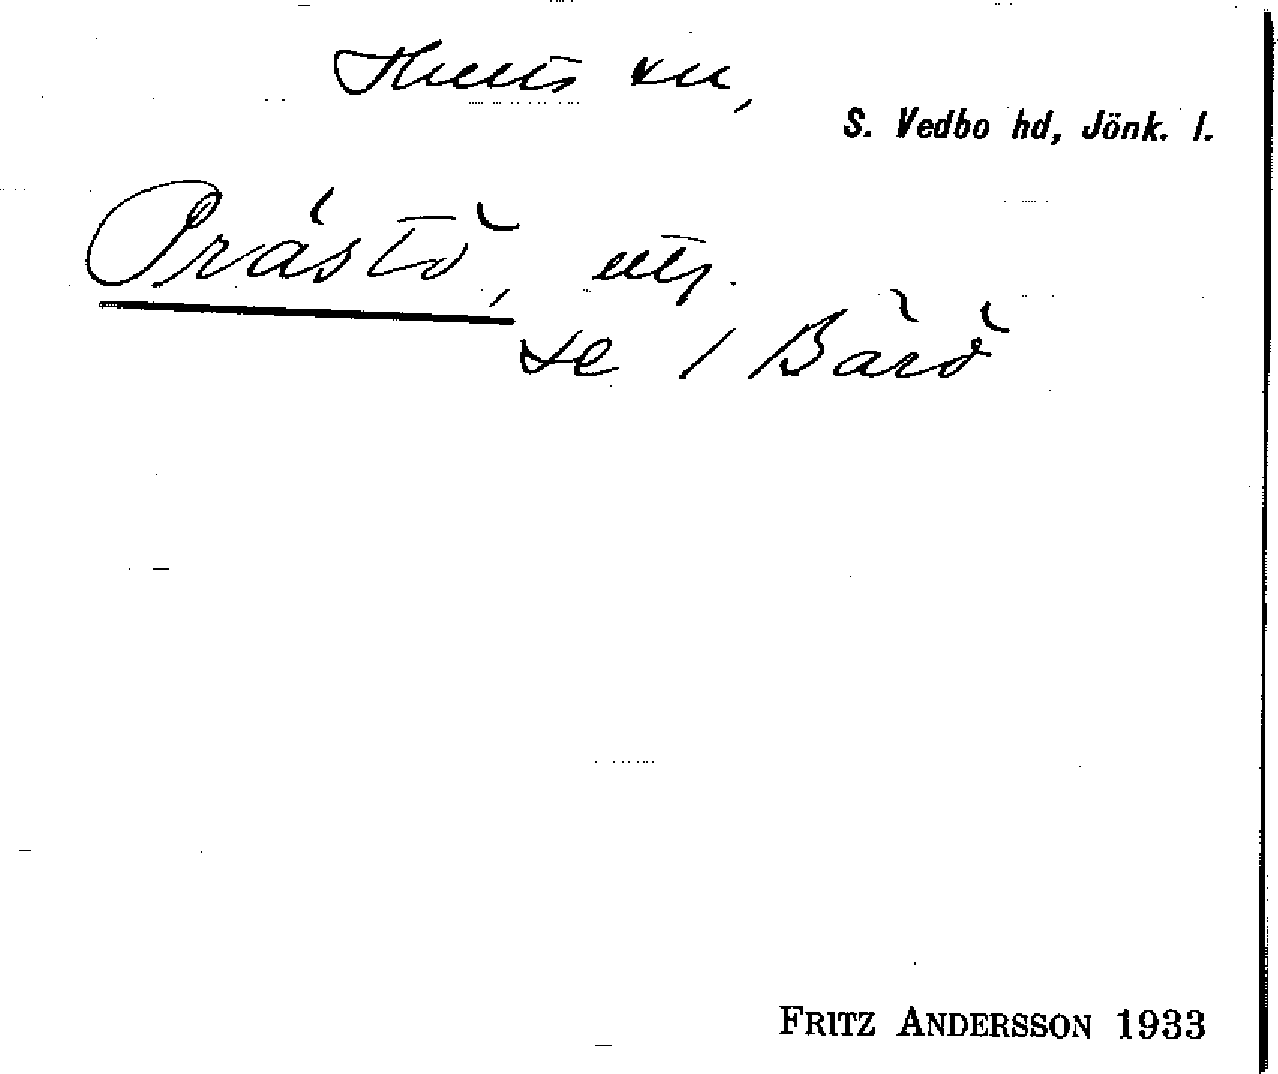 Hults sn,
S. Vedbo hd, Jönk. l.
Prästö, utj.
se 1 Bärö
FRITZ ANDERSSON 1933